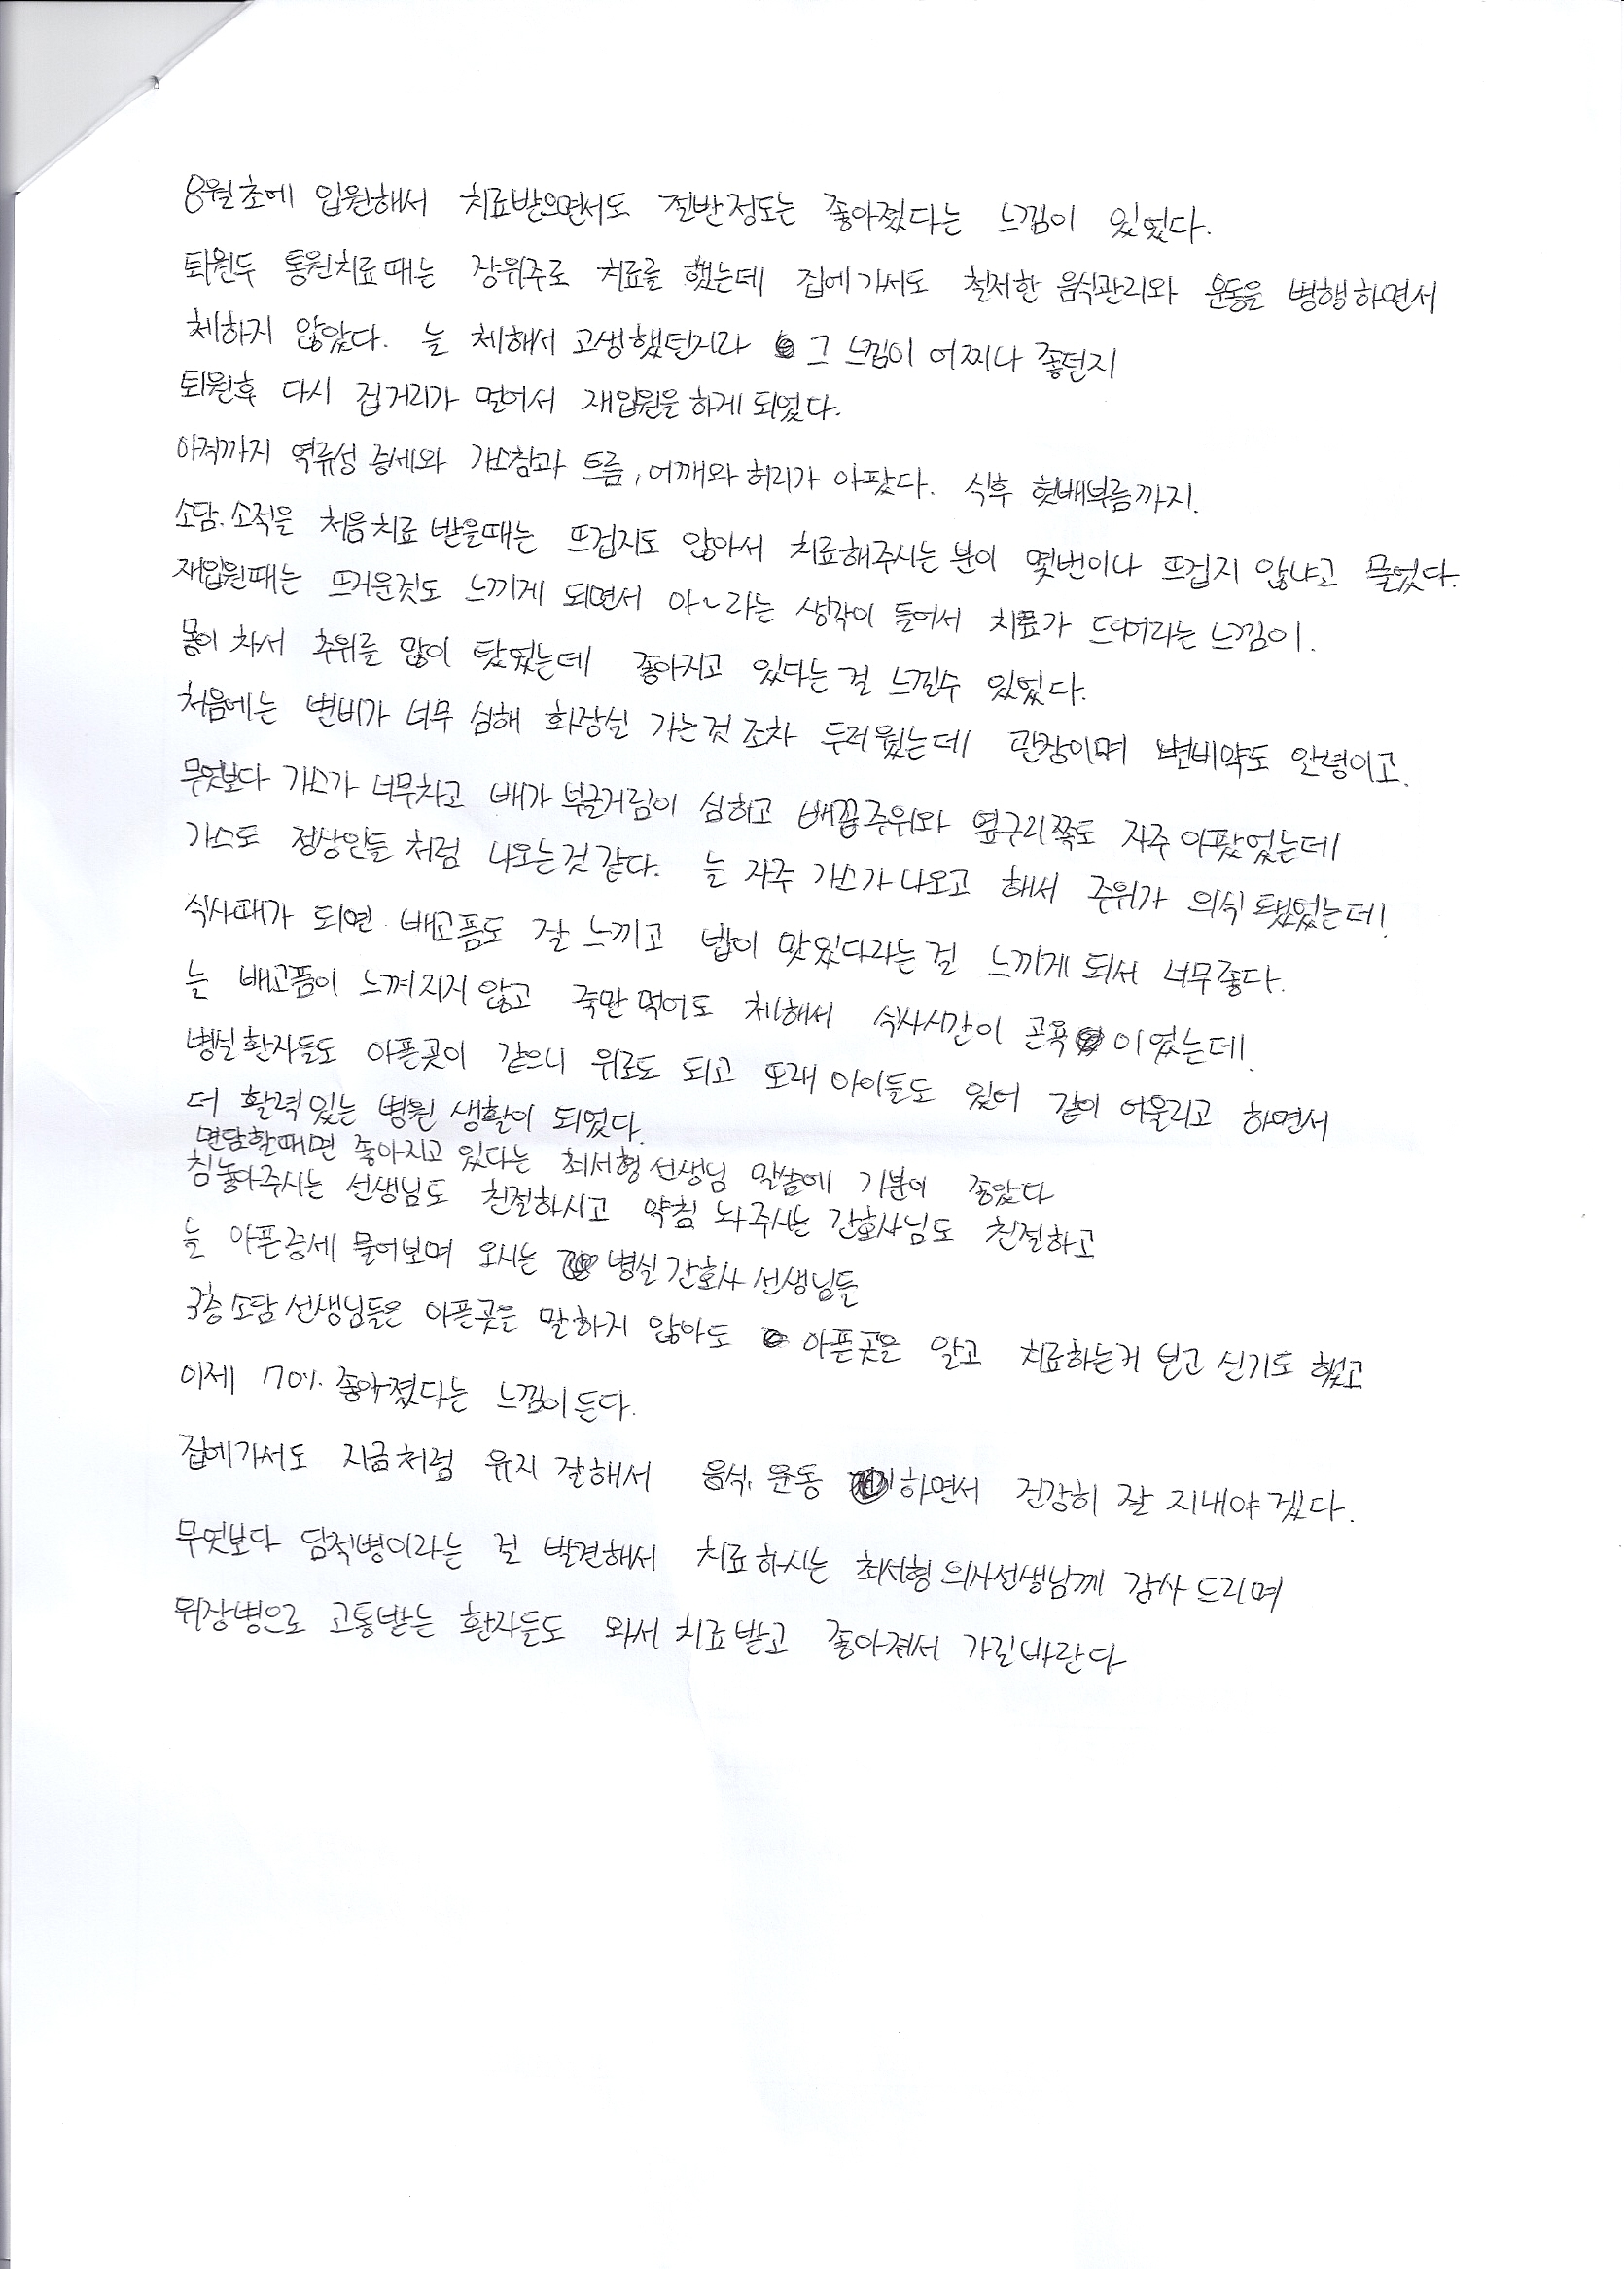 8월초에 입원해서 치료받으면서도 절반정도는 좋아졌다는 느낌이 있었다.
퇴원두 통원치료때는 장위주로 치료를 했는데 집에가서도 철저한 음식관리와 운동을 병행하면서
체하지 않았다. 늘 체해서 고생했던지라 그 느낌이 어찌나 좋던지
퇴원후 다시 집거리가 멀어서 재입원을 하게 되었다.
아직까지 역류성 증세와 가스참과 트름, 어깨와 허리가 아팠다. 식후 헛배부름까지.
소담.소적은 처음치료 받을때는 뜨겁지도 않아서 치료해주시는 분이 몇번이나 뜨겁지 않냐고 물었다.
재입원때는 뜨거운것도 느끼게 되면서 아~라는 생각이 들어서 치료가 드뎌라는 느낌이.
몸이 차서 추위를 많이 탔었는데 좋아지고 있다는 걸 느낄수 있었다.
처음에는 변비가 너무 심해 화장실 가는것 조차 두려웠는데 관장이며 변비약도 안녕이고.
무엇보다 가스가 너무차고 배가 부글거림이 심하고 배꼽주위와 옆구리쪽도 자주 아팠었는데
가스도 정상인들 처럼 나오는것 같다. 늘 자주 가스가 나오고 해서 주위가 의식 됐었는데!
식사때가 되면 배고픔도 잘 느끼고 밥이 맛있다라는 걸 느끼게 되서 너무좋다.
늘 배고픔이 느껴지지 않고 죽만 먹어도 체해서 식사시간이 곤욕이었는데.
병실 환자들도 아픈곳이 같으니 위로도 되고 또래 아이들도 있어 같이 어울리고 하면서
더 활력있는 병원 생활이 되었다.
면담할때면 좋아지고 있다는 최서형 선생님 말씀에 기분이 좋았다
침놓아주시는 선생님도 친절하시고 약침 놔주시는 간호사님도 친절하고
늘 아픈증세 물어보며 오시는 병실 간호사 선생님들
3층 소담 선생님들은 아픈곳은 말하지 않아도 아픈곳은 알고 치료하는거 보고 신기도 했고
이제 70% 좋아졌다는 느낌이든다.
집에가서도 지금처럼 유지 잘해서 음식, 운동 하면서 건강히 잘 지내야겠다.
무엇보다 담적병이라는 걸 발견해서 치료하시는 최서형 의사선생님께 감사 드리며
위장병으로 고통받는 환자들도 와서 치료받고 좋아져서 가길바란다